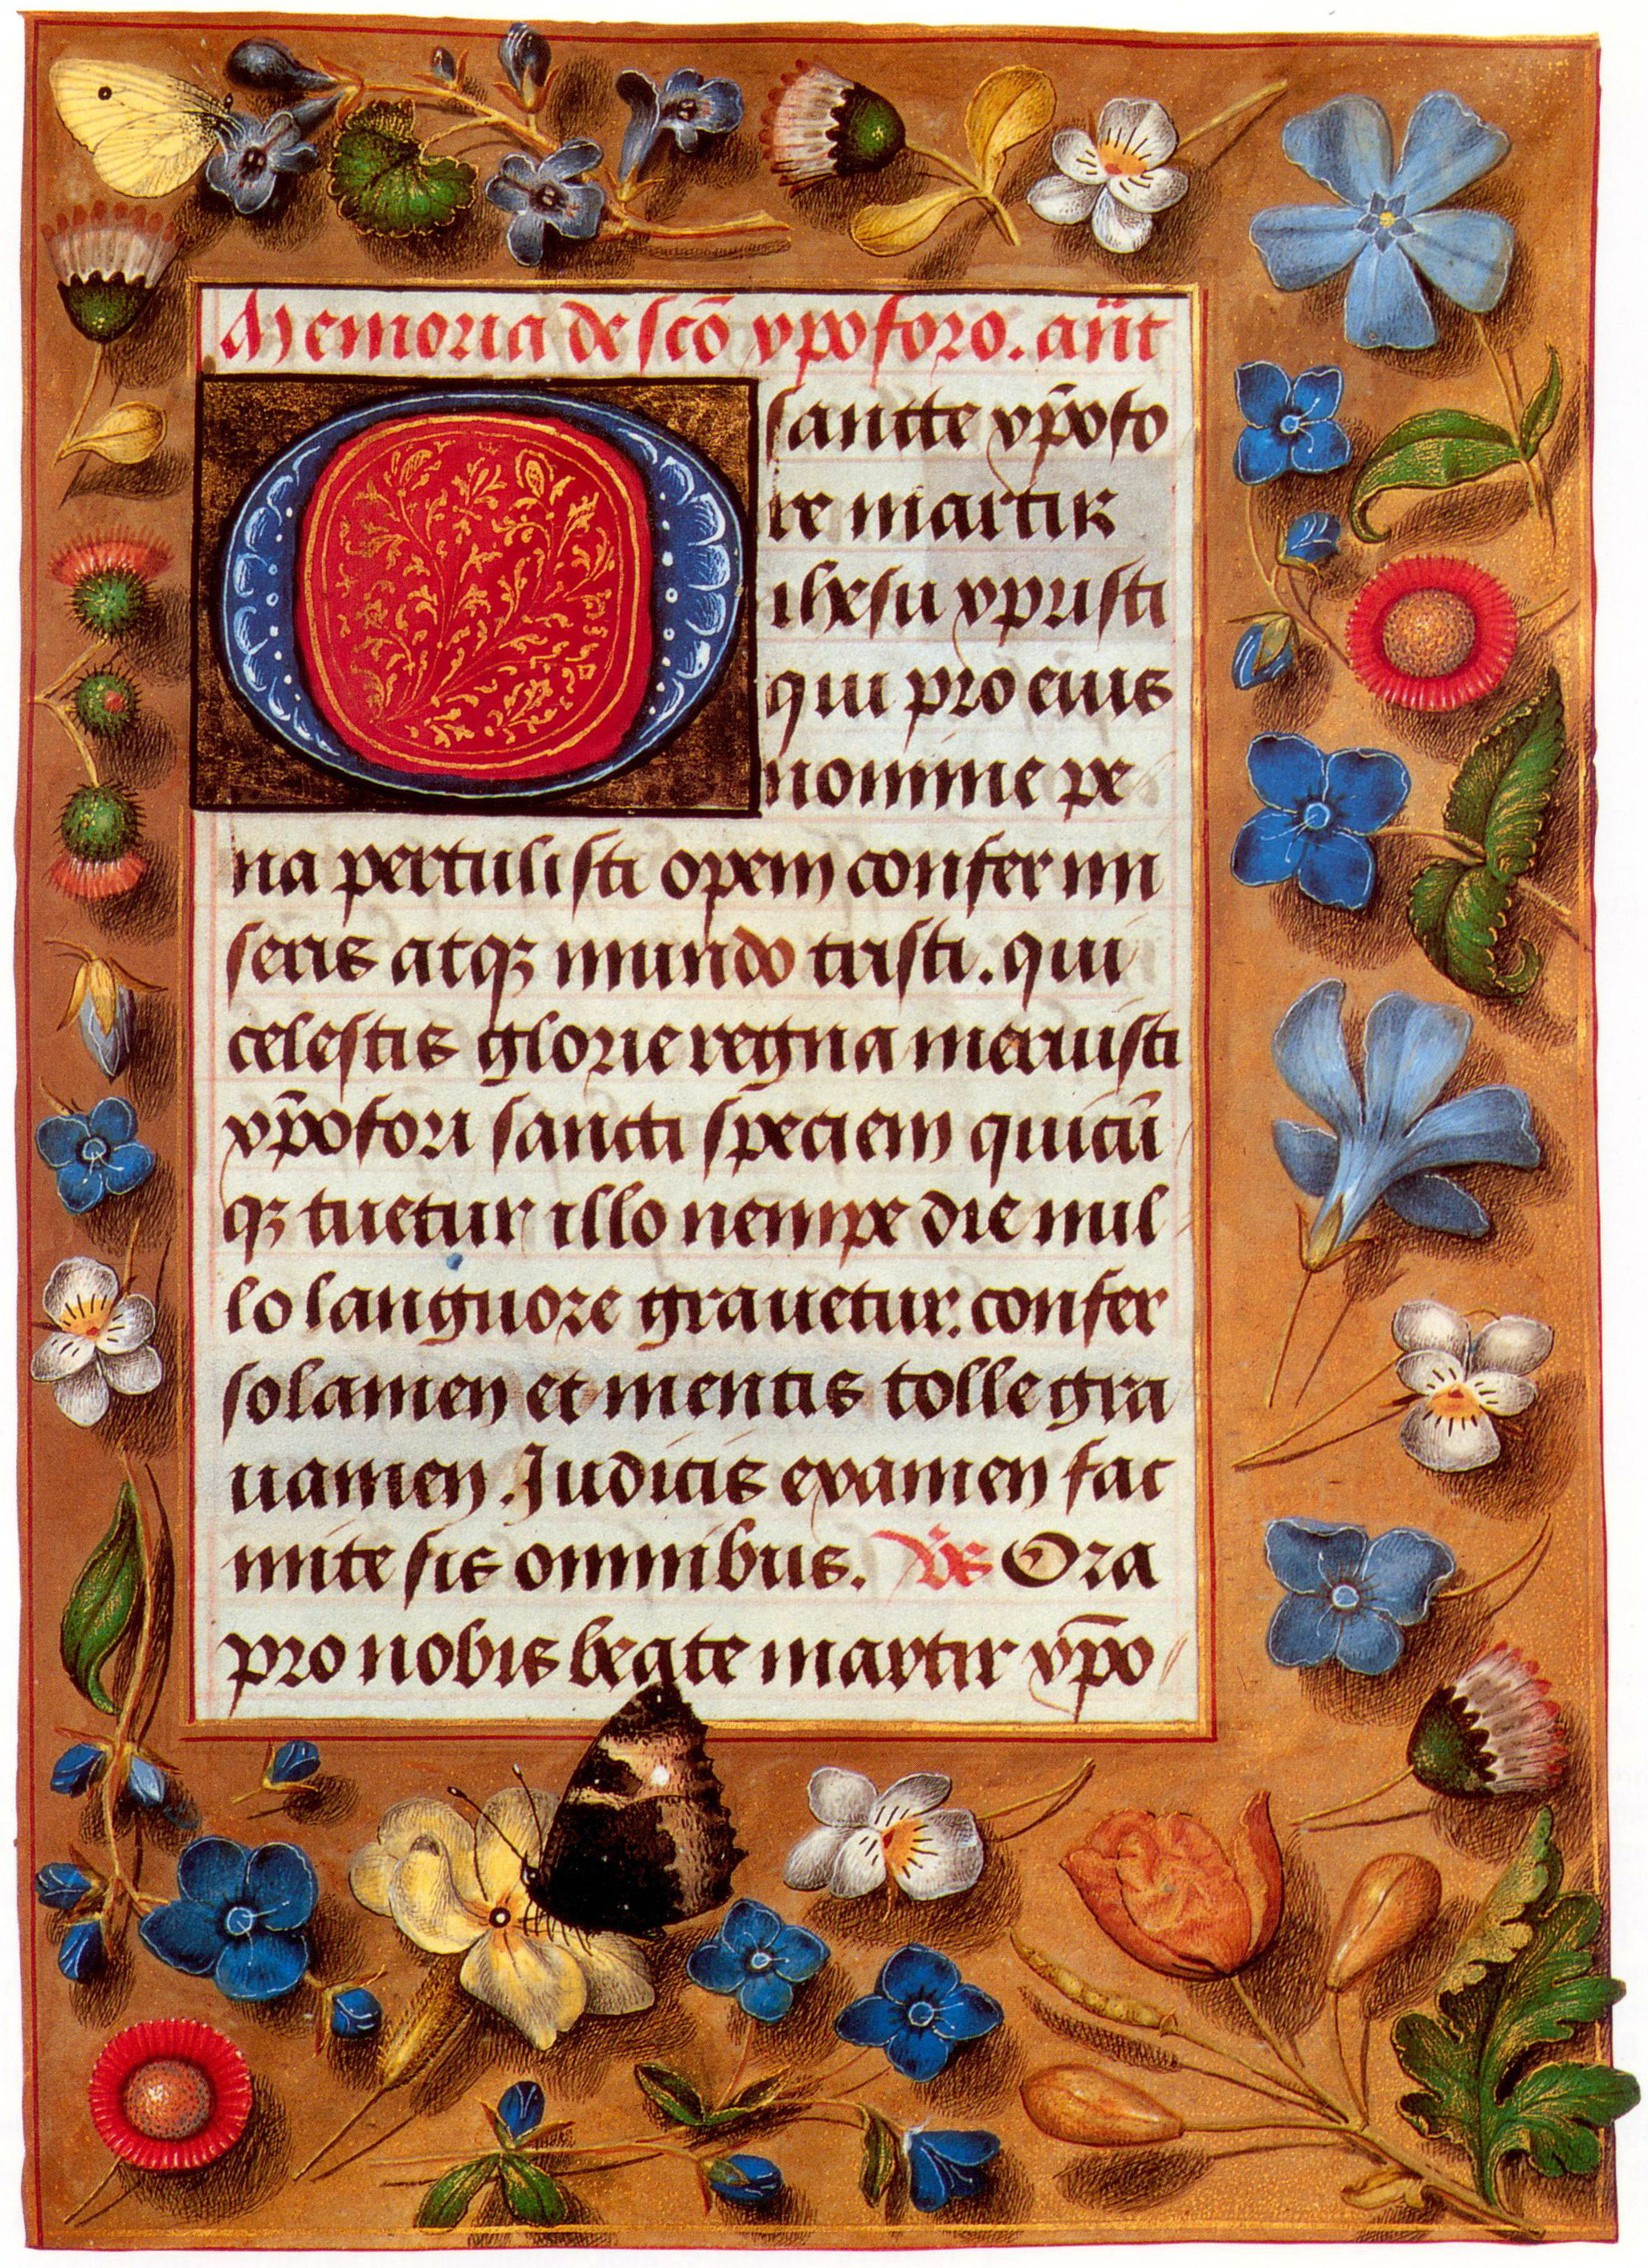 Memoria de scō xpoforo. an̄t
O sancte xp̄ofo
re martir
ihesu xpristi
qui pro eius
nomine pe
na pertulisti opem confer mi
seris atqꝫ mundo tristi. qui
celestis glorie regna meruisti
xp̄ofori sancti speciem quicū
qꝫ tuetur illo nempe die nul
lo languore grauetur. confer
solamen et mentis tolle gra
uamen. Judicis examen fac
mite sis omnibus. Vs Ora
pro nobis beate martir xp̄o